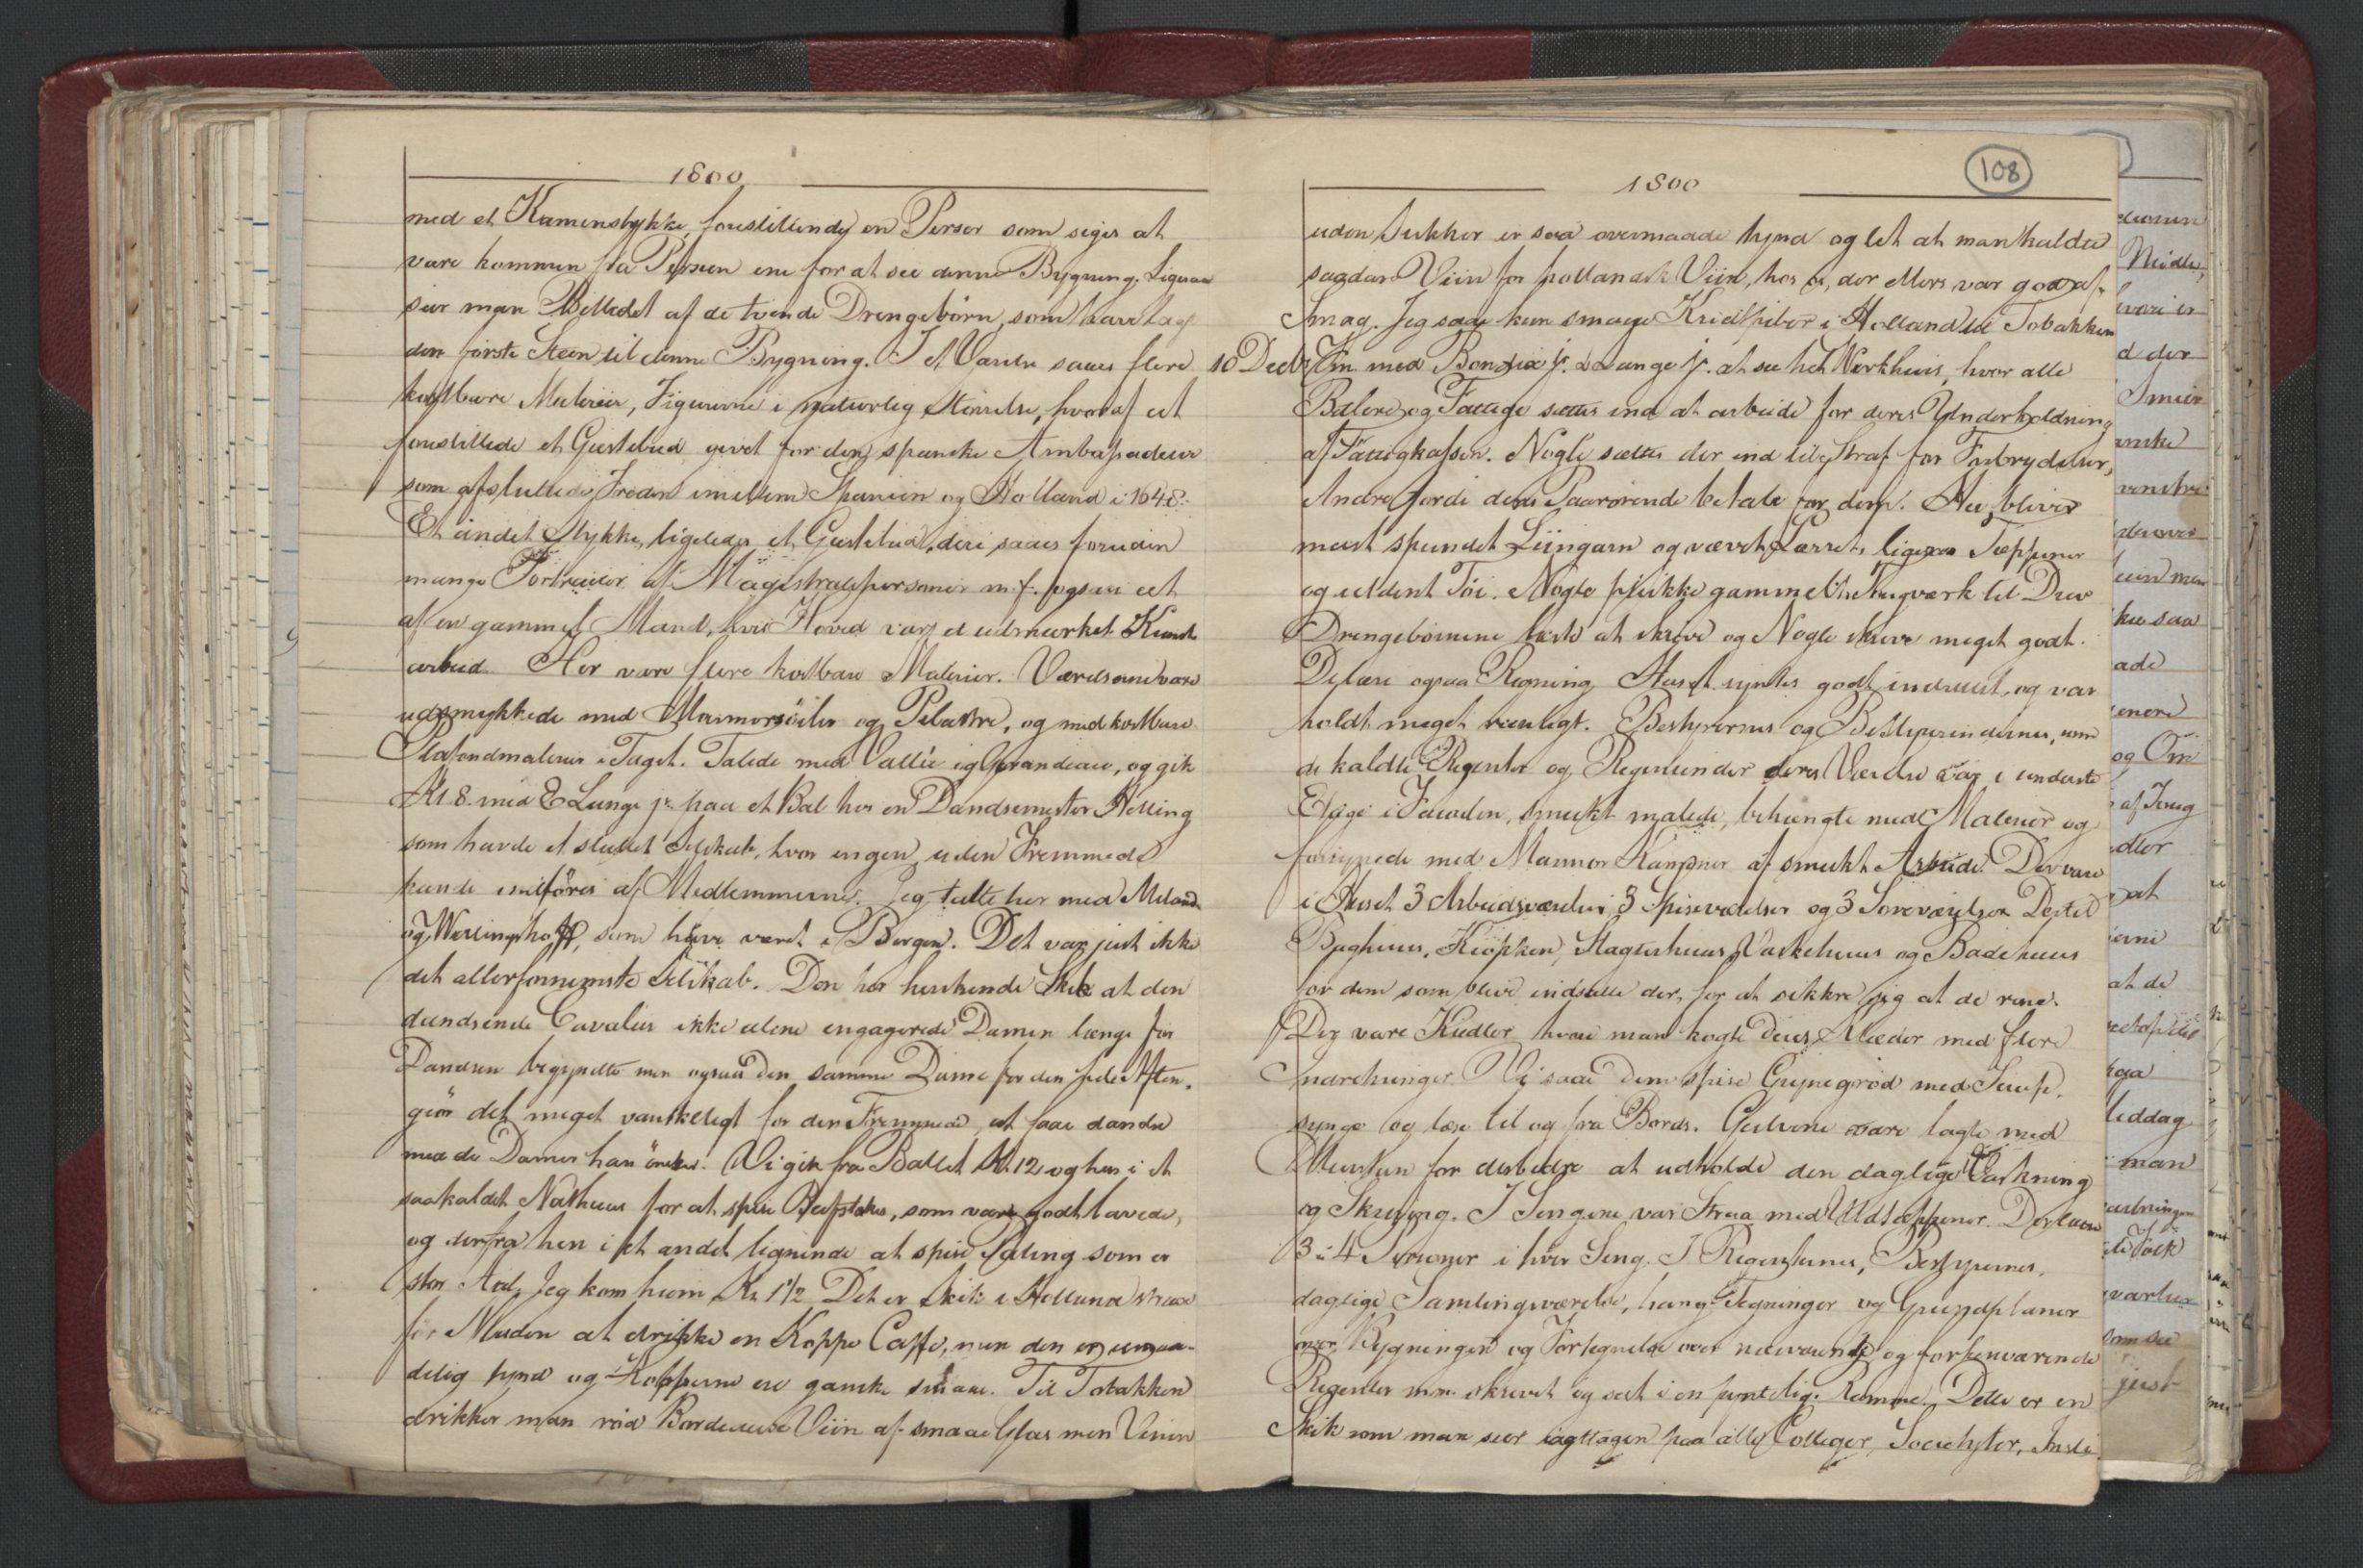 1800
med et Kamenstykke, forestillende en Perser som siges at
være kommen fra Persien ene for at see denne Bygning. Ligesaa
seer man Billedet af de tvende Drengebörn, som have lagt
den förste Steen til denne Bygning. I et Værelse saaes flere
kostbare Malerier, Figurerne i naturlig Störrelse, hvoraf eet
forestillede et Gjestebud givet for den spanske Ambassadeur
som afsluttede Freden imellem Spanien og Holland i 1648.
Et andet Stykke, ligeledes et Gjestebud, deri saaes foruden
mange Portraiter af Magistratspersoner m.f. ogsaa eet
af en gammel Mand, hvis Hoved var et udmærket Kunst
arbeid. Her vare flere kostbare Malerier. Værelserne vare
udsmykkede med Marmorsöiler og Pilastre, og med kostbare
Plafondmalerier i Taget. Talede med Vallée og Grandeau, og gik
Kl 8. med E Lange jr. paa et Bal hos en Dandsemester Helling
som havde et sluttet Selskab, hvor ingen uden Fremmede
kunde indföres af Medlemmerne. Jeg talte her med Meland
og Wesslinghoff, som have været i Bergen. Det var just ikke
det allerfornemste Selskab. Den her herskende Skik at den
dandsende Cavaleer ikke alene engagerede Damen længe før
Dandsen begyndte men ogsaa den samme Dame for den hele Aften,
giör det meget vanskeligt for den Fremmede, at faae dandse
med de Damer han önsker. Vi gik fra Ballet Kl. 12 og hen i et
saakaldet Nathuus for at spise Beefsteks, som vare godt lavede,
og derfra hen i et andet lignende at spise Paling som er
stor Aal, Jeg kom hiem Kl. 1½ Det er Skik i Holland strax
før Maden at drikke en Koppe Caffe, men den er umaa-
delig tynd og Kopperne ere ganske smaae. Til Tobakken
drikker man röd Bordeauxe Viin af smaae Glas men Vinen
1800
108
uden Sukker er saa overmaade tynd og let at man kaldte
saadan Viin for hollandsk Viin, hos os, der ellers var god af
Smag. Jeg saae kun smaae Kridtpiber i Holland til Tobakken
10 Decbr Om med Bendix jr. & Lange jr. at see het Werkhuis, hvor alle
Betlere og Fattige sættes ind at arbeide for deres Underholdning
af Fattigkassen. Nogle sættes der ind til Straf for Forbrydelser,
Andre fordi deres Paarörende betale for dem. Her bliver
meest spundet Liingarn og vævet Lærret, ligesaa Tæppener
og uldent Töi. Nogle plukke gammelt Taugværk til Drev
Drengebörnene lærte at skrive og Nogle skrev meget godt.
De lære ogsaa Regning. Huset syntes godt indrettet, og var
holdt meget reenligt. Bestyrernes og Bestyrerindernes, som
de kaldte Regenter og Regentinder deres Værelse var i underste
Etage i Facaden, smukt malede, behængte med Malerier og
forsynede med Marmor Kaminer af smukt Arbeide. Der vare
i Huset 3 Arbeidsværelser 3 Spiseværelser og 3 Soveværelser Dertil
Bryghuus, Kiökken, Slagterhuus, Vaskehuus og Badehuus
for dem som bleve indsatte der, for at sikkre sig at de rene.
Der vare Kiedler hvori man kogte Deres Klæder med flere
Indretninger. Vi saae dem spise Gryngröd med Sirup,
synge og læse til og fra Bords. Gulvene vare lagte med
Muursten for desbedre at udholde den daglige Vaskning
og Skuring. I Sengene var Straa med Uldtæppener. Der laae
3 à 4 Personer i hver Seng. I Regenternes, Bestyrernes,
daglige Samlingsværelse, hang Tegninger og Grundplaner
over Bygningen og Fortegnelse over nærværende og forhenværende
Regenter m.m. skrevet og sat i en prægtig Ramme. Dette er en
Skik som man seer iagttagen paa alle Colleger, Societeter, Insti